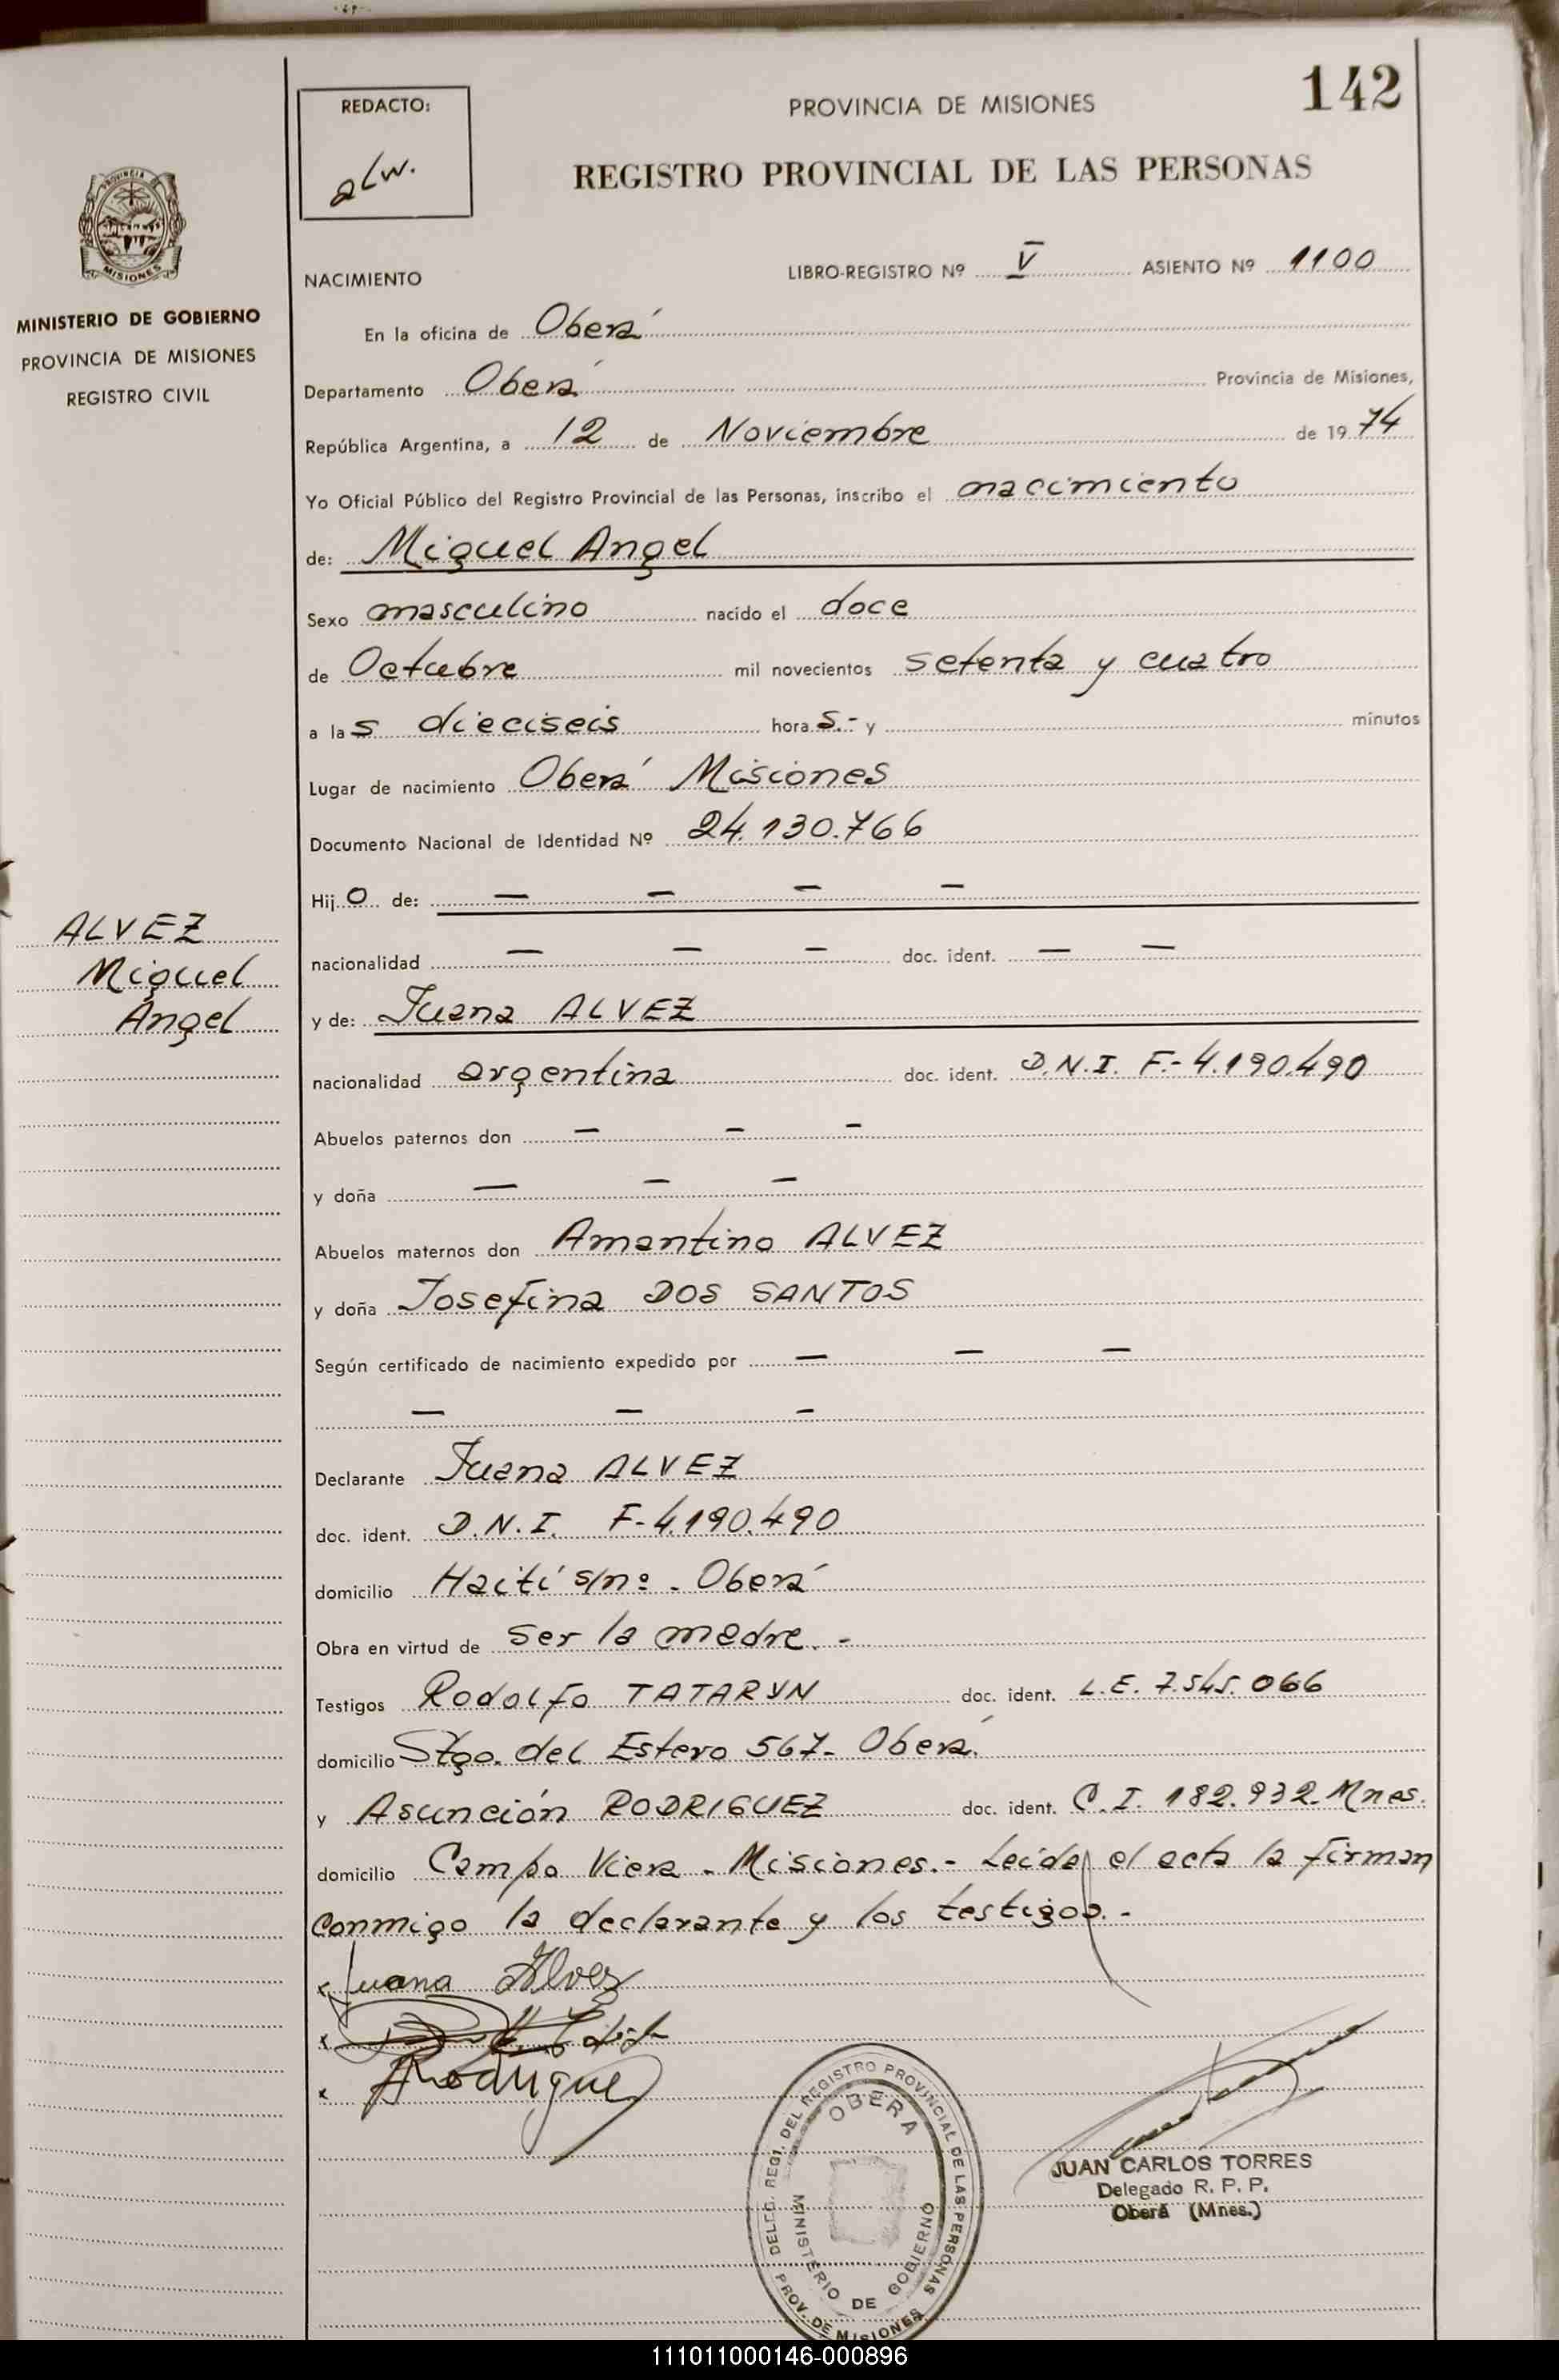 142
REDACTO:
PROVINCIA DE MISIONES
REGISTRO PROVINCIAL DE LAS PERSONAS
PROVINCIA DE
MISIONES
MINISTERIO DE GOBIERNO
PROVINCIA DE MISIONES
REGISTRO CIVIL
NACIMIENTO LIBRO-REGISTRO Nº V ASIENTO Nº 1100
En la oficina de Oberá
Departamento Oberá Provincia de Misiones,
República Argentina, a 12 de Noviembre de 19 74
Yo Oficial Público del Registro Provincial de las Personas, inscribo el nacimiento
de: Miguel Angel
Sexo masculino nacido el doce
de Octubre mil novecientos setenta y cuatro
a las dieciseis horas.- y minutos
Lugar de nacimiento Oberá Misiones
Documento Nacional de Identidad Nº 24.130.766
Hijo de: — — — —
nacionalidad — — — doc. ident. — —
ALVEZ
Miguel
Angel
y de: Juana ALVEZ
nacionalidad argentina doc. ident. D.N.I. F.- 4.190.490
Abuelos paternos don — — —
y doña — — —
Abuelos maternos don Amantino ALVEZ
y doña Josefina DOS SANTOS
Según certificado de nacimiento expedido por — — —
— — —
Declarante Juana ALVEZ
doc. ident. D.N.I. F-4.190.490
domicilio Haití s/nº - Oberá
Obra en virtud de ser la madre.-
Testigos Rodolfo TATARYN doc. ident. L.E. 7.545.066
domicilio Stgo. del Estero 567- Oberá.
y Asunción RODRIGUEZ doc. ident. C.I. 182.932-Mnes.
domicilio Campo Viera - Misiones.- Leída el acta la firman
conmigo la declarante y los testigos.-
x Juana Alvez
x
x ARodriguez
DELEG. REGI. DEL REGISTRO PROVINCIAL DE LAS PERSONAS
OBERA
MINISTERIO DE GOBIERNO
PROV. DE MISIONES
JUAN CARLOS TORRES
Delegado R. P. P.
Oberá (Mnes.)
111011000146-000896